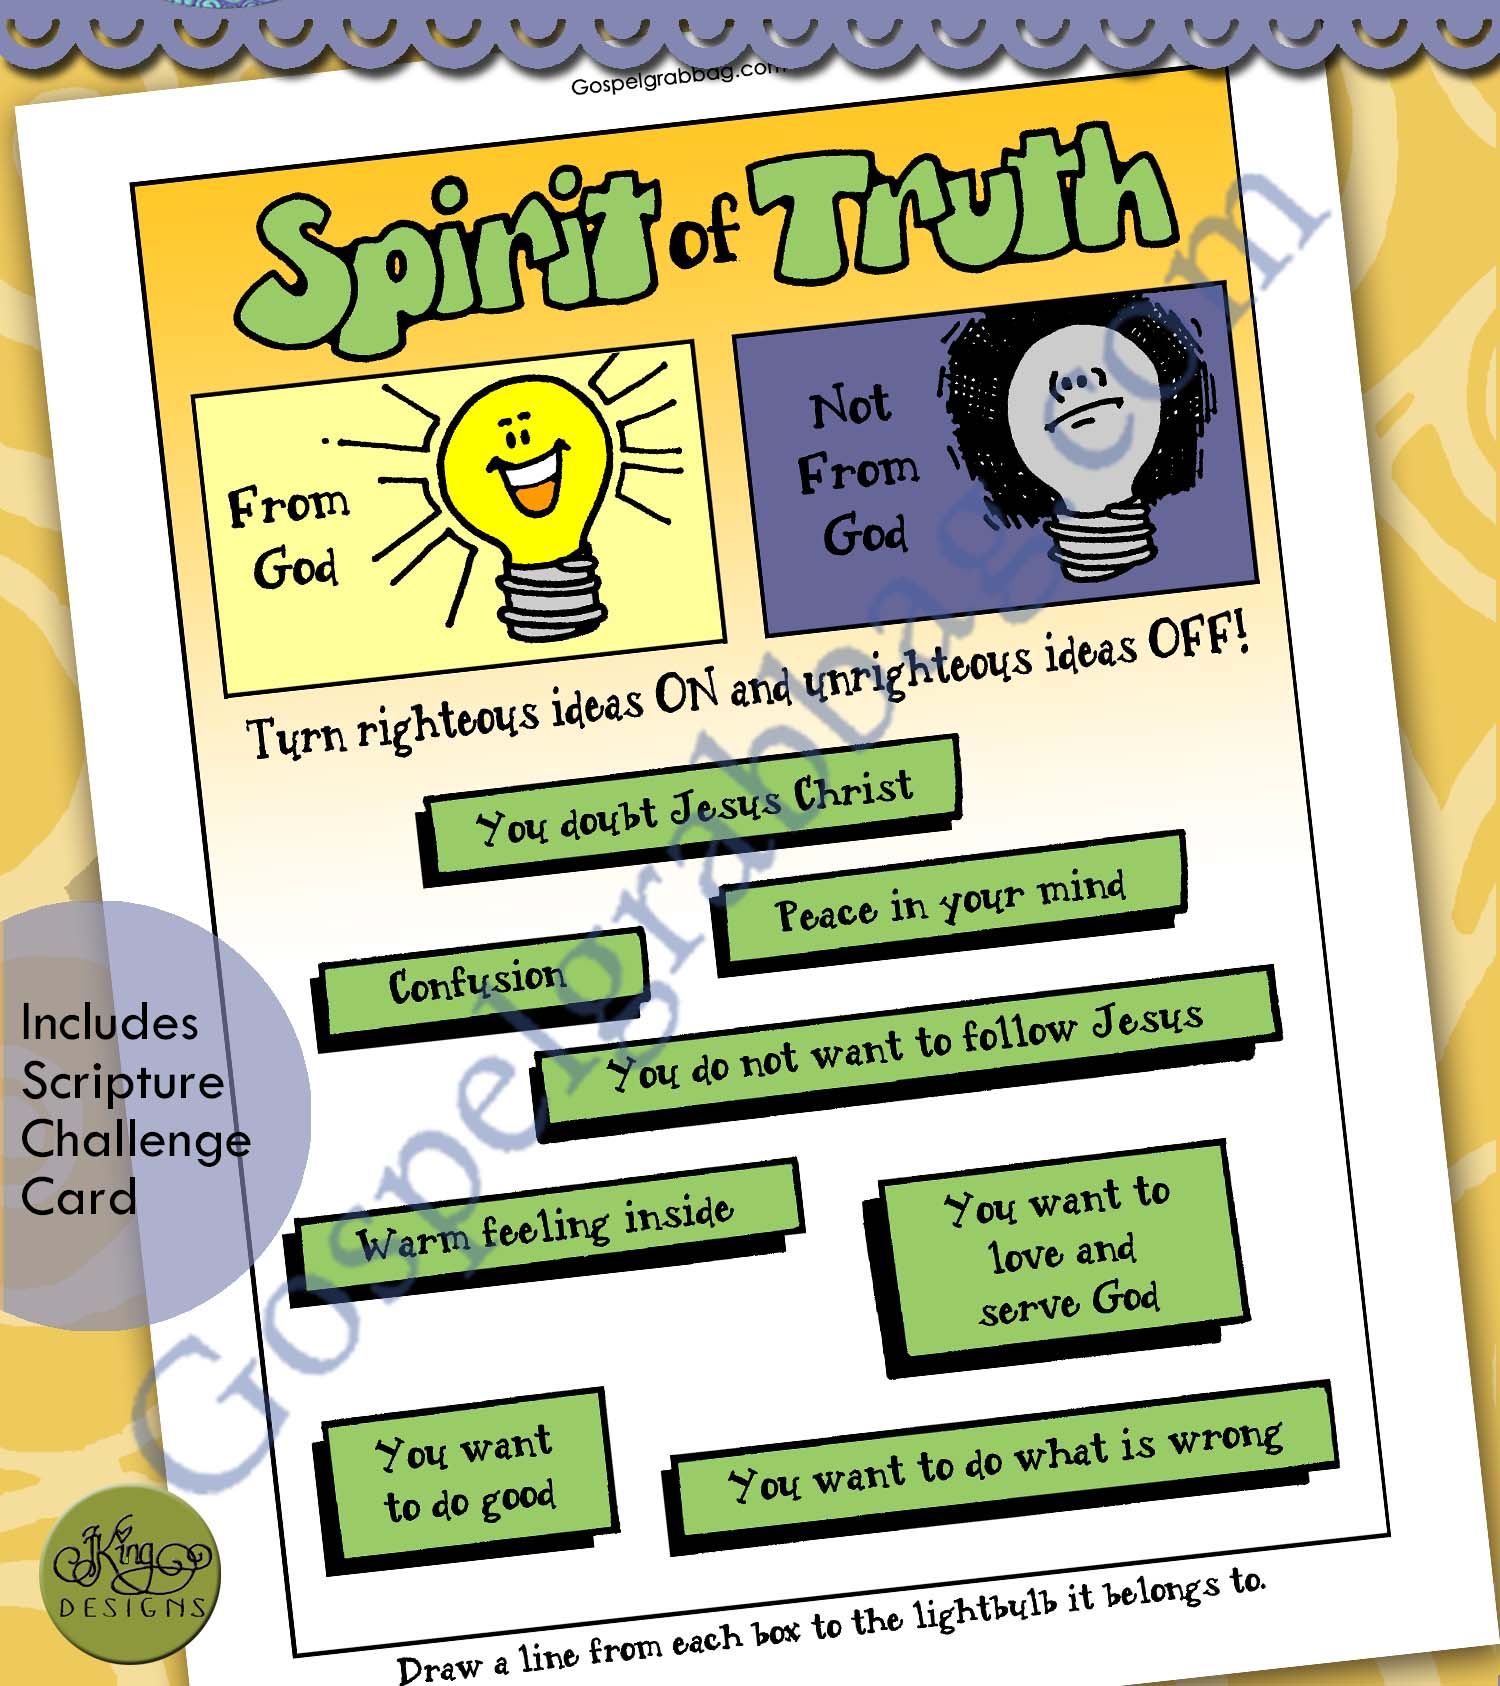 Gospelgrabbag.com
Spirit of Truth
From
God
Not
From
God
Turn righteous ideas ON and unrighteous ideas OFF!
You doubt Jesus Christ
Peace in your mind
Confusion
You do not want to follow Jesus
Warm feeling inside
You want to
love and
serve God
You want
to do good
You want to do what is wrong
Draw a line from each box to the lightbulb it belongs to.
Includes
Scripture
Challenge
Card
JKing
DESIGNS
Gospelgrabbag.com